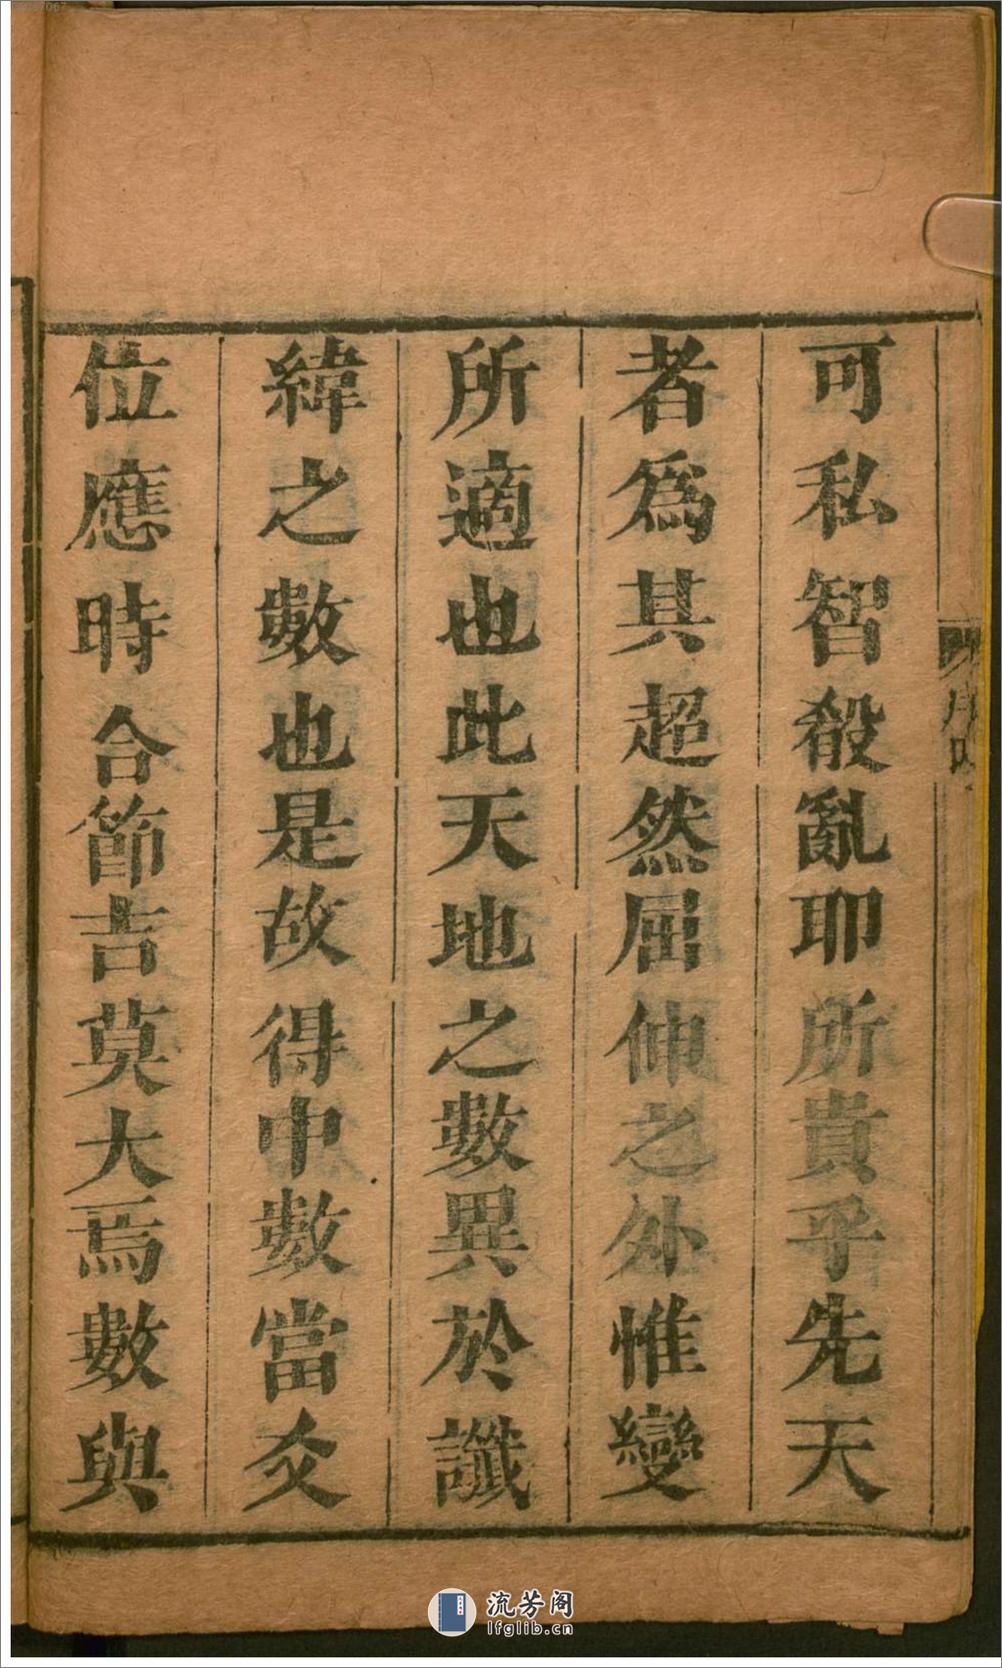 可私智殽亂耶所貴乎先天
者為其超然屈伸之外惟變
所適也此天地之數異於讖
緯之數也是故得中數當爻
位應時合節吉莫大焉數與
序
流芳阁
lfglib.cn